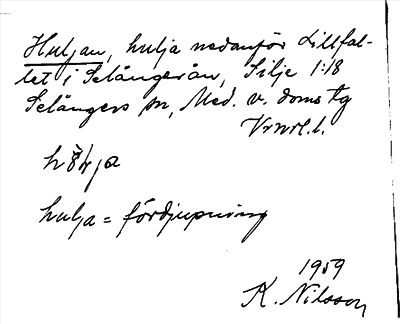 Huljan, hulja nedanför Lillfal-
let i Selångerån, Silje 1:18
Selångers sn, Med. v. doms tg
hulja = fördjupning
1959
K. Nilsson